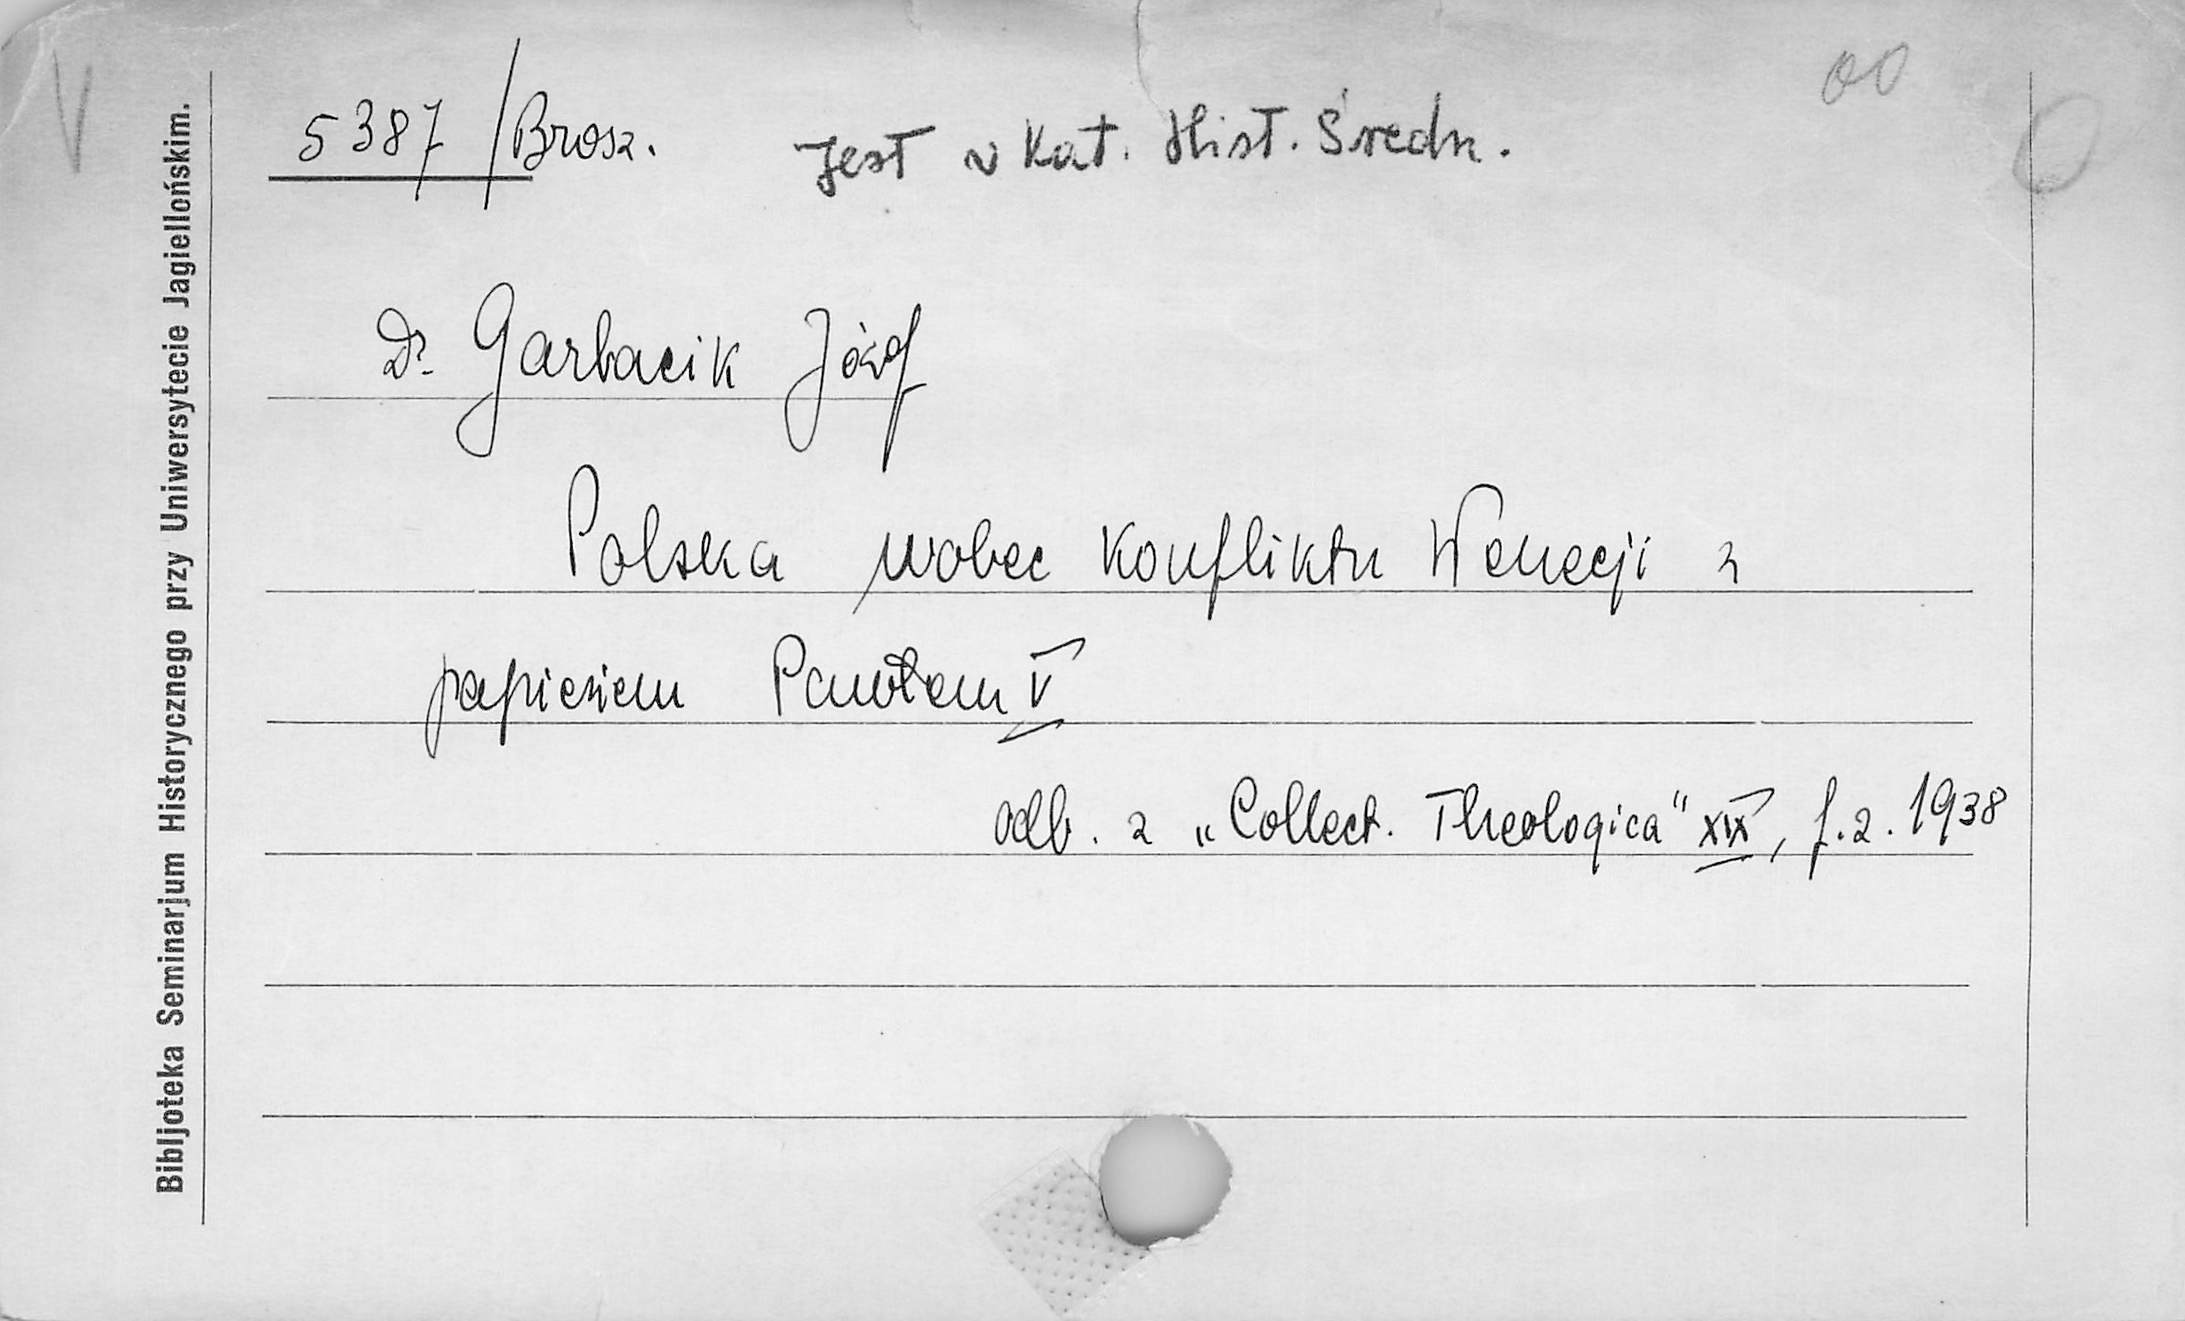 Bibljoteka Seminarjum Historycznego przy Uniwersytecie Jagiellońskim.
V
5387/Brosz.
Jest w Kat. Hist. Średn.
00
0
Dr Garbacik Józef
Polska wobec Konfliktu Wenecji z
papieżem Pawłem V
odb. z „Collect. Theologica" XIX, f.2. 1938